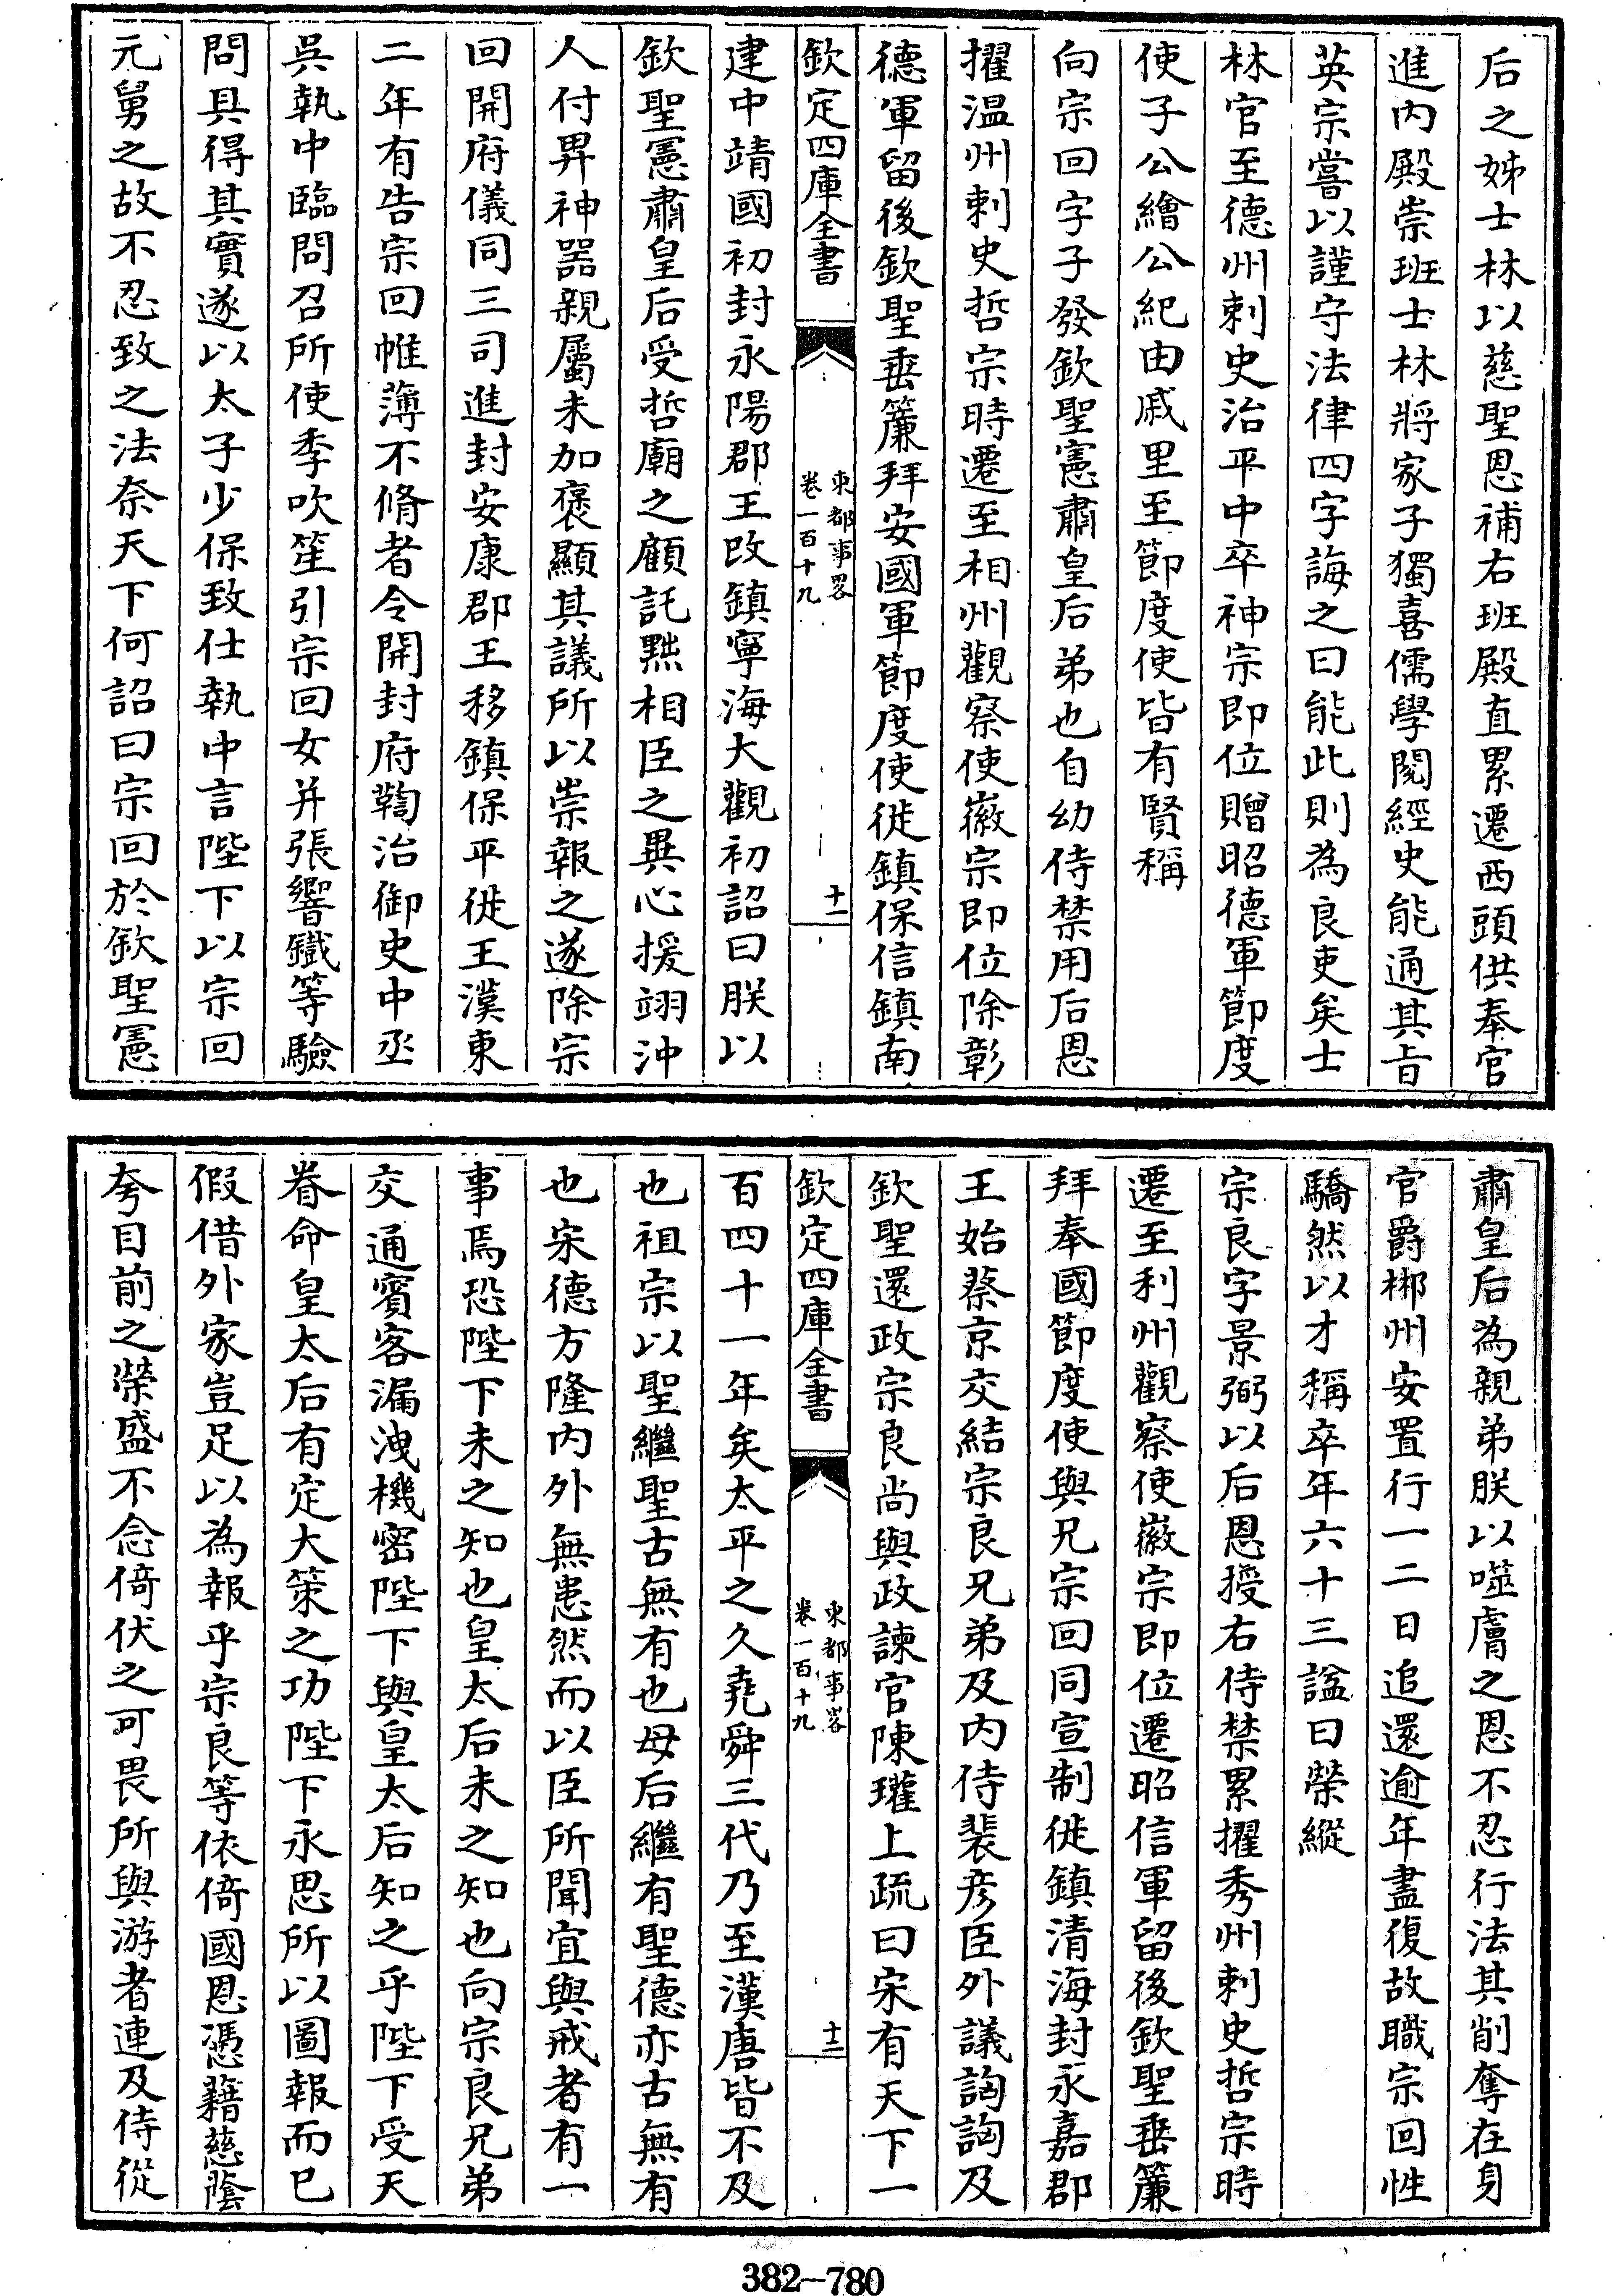 后之姊士林以慈聖恩補右班殿直累遷西頭供奉官
進内殿崇班士林將家子獨喜儒學閲經史能通其㫖
英宗嘗以謹守法律四字誨之曰能此則為良吏矣士
林官至德州刺史治平中卒神宗即位贈昭德軍節度
使子公繪公紀由戚里至節度使皆有賢稱
向宗回字子發欽聖憲肅皇后弟也自幼侍禁用后恩
擢温州刺史哲宗時遷至相州觀察使徽宗即位除彰
德軍留後欽聖垂簾拜安國軍節度使徙鎮保信鎮南
欽定四庫全書
東都事畧
卷一百十九
十一
建中靖國初封永陽郡王改鎮寧海大觀初詔曰朕以
欽聖憲肅皇后受哲廟之顧託黜相臣之異心援翊沖
人付畀神器親屬未加褒顯其議所以崇報之遂除宗
回開府儀同三司進封安康郡王移鎮保平徙王漢東
二年有告宗回帷薄不脩者令開封府鞫治御史中丞
吳執中臨問召所使季吹笙引宗回女并張響鐵等驗
問具得其實遂以太子少保致仕執中言陛下以宗回
元舅之故不忍致之法奈天下何詔曰宗回於欽聖憲
肅皇后為親弟朕以噬膚之恩不忍行法其削奪在身
官爵郴州安置行一二日追還逾年盡復故職宗回性
驕然以才稱卒年六十三諡曰榮縱
宗良字景弼以后恩授右侍禁累擢秀州刺史哲宗時
遷至利州觀察使徽宗即位遷昭信軍留後欽聖垂簾
拜奉國節度使與兄宗回同宣制徙鎮清海封永嘉郡
王始蔡京交結宗良兄弟及内侍裴彦臣外議詾詾及
欽聖還政宗良尚與政諫官陳瓘上疏曰宋有天下一
欽定四庫全書
東都事畧
卷一百十九
十二
百四十一年矣太平之久堯舜三代乃至漢唐皆不及
也祖宗以聖繼聖古無有也母后繼有聖德亦古無有
也宋德方隆内外無患然而以臣所聞宜與戒者有一
事焉恐陛下未之知也皇太后未之知也向宗良兄弟
交通賓客漏洩機密陛下與皇太后知之乎陛下受天
眷命皇太后有定大策之功陛下永思所以圖報而已
假借外家豈足以為報乎宗良等依倚國恩憑藉慈蔭
夸目前之榮盛不念倚伏之可畏所與游者連及侍從
382—780